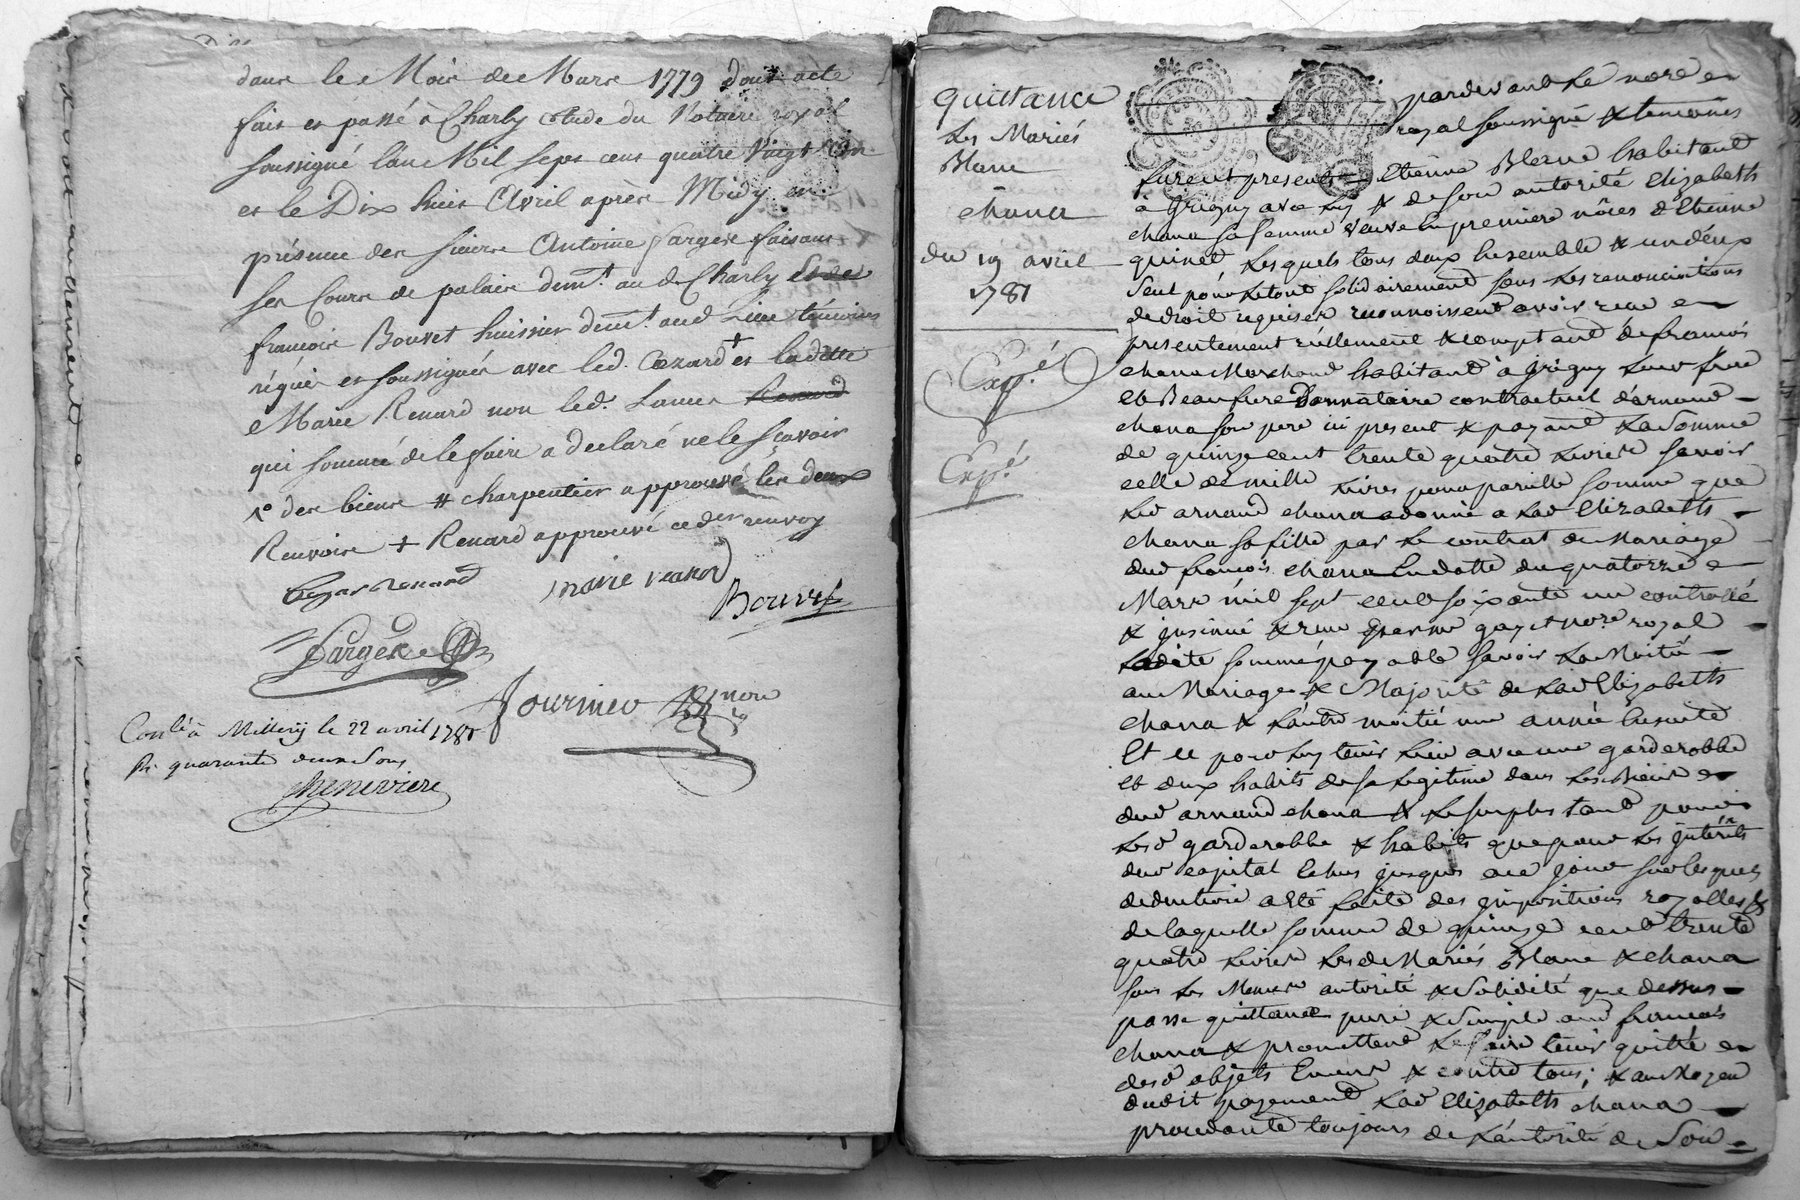 dans le Mois de Mars 1779 dont acte
fait et passé à Charly Etude du Notaire royal
soussigné l'an Mil sept cens quatre Vingt Un
et le Dix huit Avril après Midy en
présence des sieurs Antoine Fargere faisant
ses Cours de palais demt. au d. Charly et de
françois Bouvet huissier demt. aud. Lieu témoins
réquis et soussignés avec led. Cezard + et ladite
Marie Renard non led. Renard
qui sommé de le faire a declaré ne le sçavoir
1° des biens # charpentier approuvé les deux
Renvois + Renard approuvé ce der renvoy
Cezar renard marie renard
Bouvet
Fargere
Journieu nore
Conlé à Millery le 22 avril 1781
Rt. quarante deux Sous
Chenevière
quittance
Les Mariés
Blanc
chana
du 19 avril
1781
Expé.
Expé.
pardevant Le nore
royal soussigné & temoins
furent presents Etienne Blanc habitant
à Grigny avec luy & de son autorité Elizabeth
chana sa femme veuve en premiere nôces d'Etienne
quinet, Lesquels tous deux Ensemble & un d'eux
Seul pour Le tout solidairement sous Les renonciations
de droit requises reconnoissent avoir reçu
presentement réellement & comptant de francois
chana Marchand habitant à Grigny Leur frere
et Beaufrere Donnataire contractuel d'arnaud
chana son pere ici present & payant La Somme
de quinze cent trente quatre Livres Savoir
celle de mille Livres pour pareille somme que
Led arnaud chana a donné a Lad Elizabeth
chana sa fille par Le contrat de Mariage
dud francois chana En datte du quatorze
Mars mil sept cent soixante un controllé
& insinué & reçu par me gayet nore. royal
Ladite somme payable savoir La Moitié
au Mariage & Majorité de Lad Elizabeth
chana & L'autre moitié une année Ensuite
Et ce pour Luy tenir Lieu avec une garderobbe
et deux habits de sa Legitime dans Les Biens
dud arnaud chana & Le surplus tant pour
Lesd garderobbe & habits que pour Les interêts
dud capital Echus jusques a ce jour sur lesquels
deduction a été faite des impositions royalles &
de laquelle somme de quinze cent trente
quatre Livres Les d Mariés Blanc & chana
sous Les Memes autorité & Solidité que dessus
passe quittance pure & Simple aud francois
chana & promettent Le faire tenir quitte
desd objets Envers & contre tous; & au Moyen
dudit payement Lad Elizabeth chana
procedante toujours de L'autorité de Son